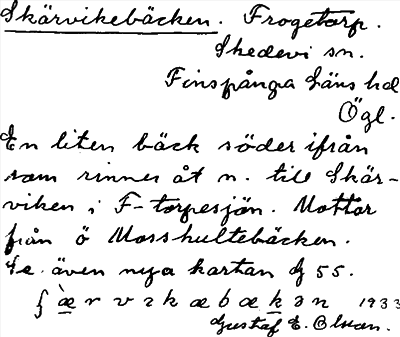 Skärvikebäcken. Frogetorp.
Skedevi sn.
Finspånga Läns hd
Ögl.
En liten bäck söder ifrån
som rinner åt n. till Skär-
viken i F-torpesjön. Mottar
från ö Mosshultebäcken.
Se även nya kartan
1933
Gustaf E. Olsson.